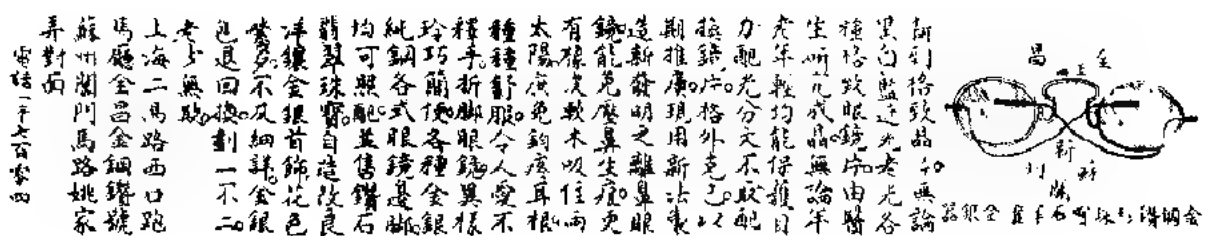 新到格致晶片無論
黑白藍近光老光各
種格致眼鏡片由醫
生所究成晶無論年
老年輕均能保護目
力配光分文不取配
換鏡片格外克己以
期推廣現用新法製
造新發明之離鼻眼
鏡能免壓鼻生痕更
有橡皮軟木吸住兩
太陽處免鈎痕耳根
種種舒服令人愛不
釋手折脚眼鏡異樣
玲巧簡便各種金銀
純鋼各式眼鏡邊脚
均可照配並售鑽石
翡翠珠寶自造改良
洋鑲金銀首飾花色
繁多不及細詳金銀
包退回換劃一不二
老少無欺
上海二馬路西口跑
馬廳金昌金鋼鑽號
蘇州閶門馬路姚家
弄對面
電話一千七百零四